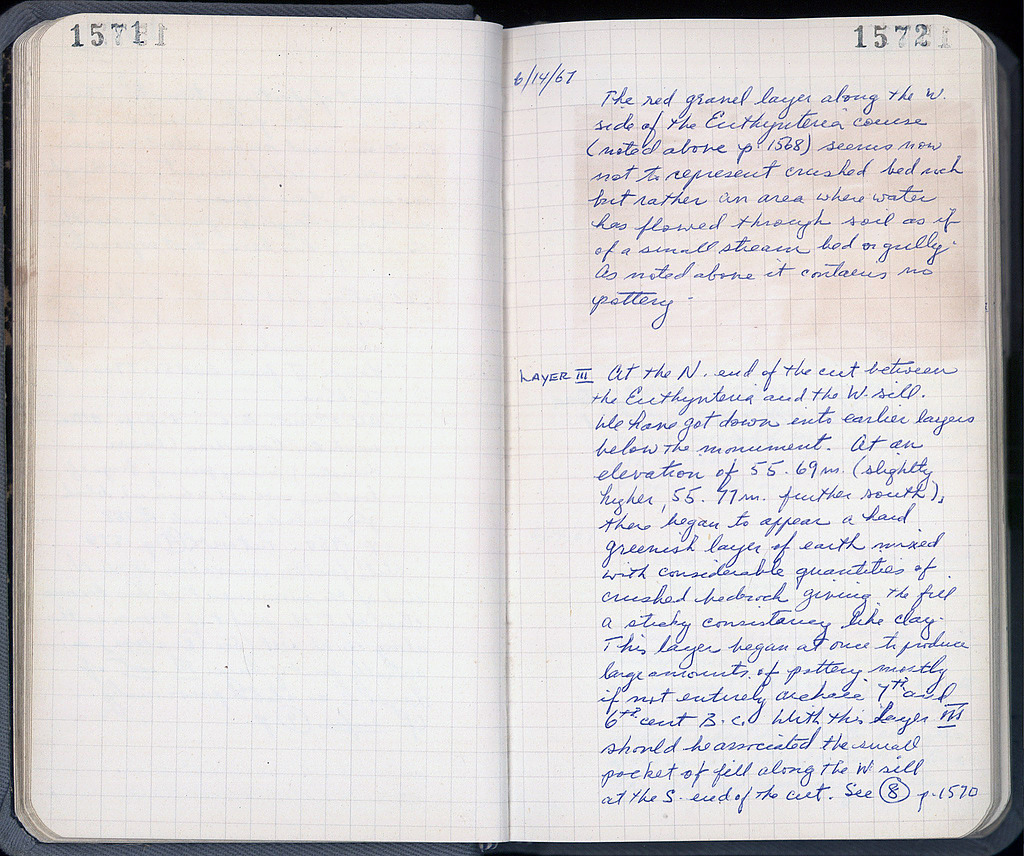 1571
1572
6/14/67
The red gravel layer along the W.
side of the Euthynteria course
(noted above p. 1568) seems now
not to represent crushed bed rock
but rather an area where water
has flowed through soil as if
of a small stream bed or gully.
As noted above it contains no
pottery.
LAYER III At the N. end of the cut between
the Euthynteria and the W. sill.
We have got down into earlier layers
below the monument. At an
elevation of 55.69m. (slightly
higher, 55.77m. further south),
there began to appear a hard
greenish layer of earth mixed
with considerable quantities of
crushed bedrock giving the fill
a sticky consistancy like clay.
This layer began at once to produce
large amounts of pottery, mostly
if not entirely archaic, 7th and
6th cent B.C. With this layer III
should be associated the small
pocket of fill along the W sill
at the S. end of the cut. See 8 p. 1570